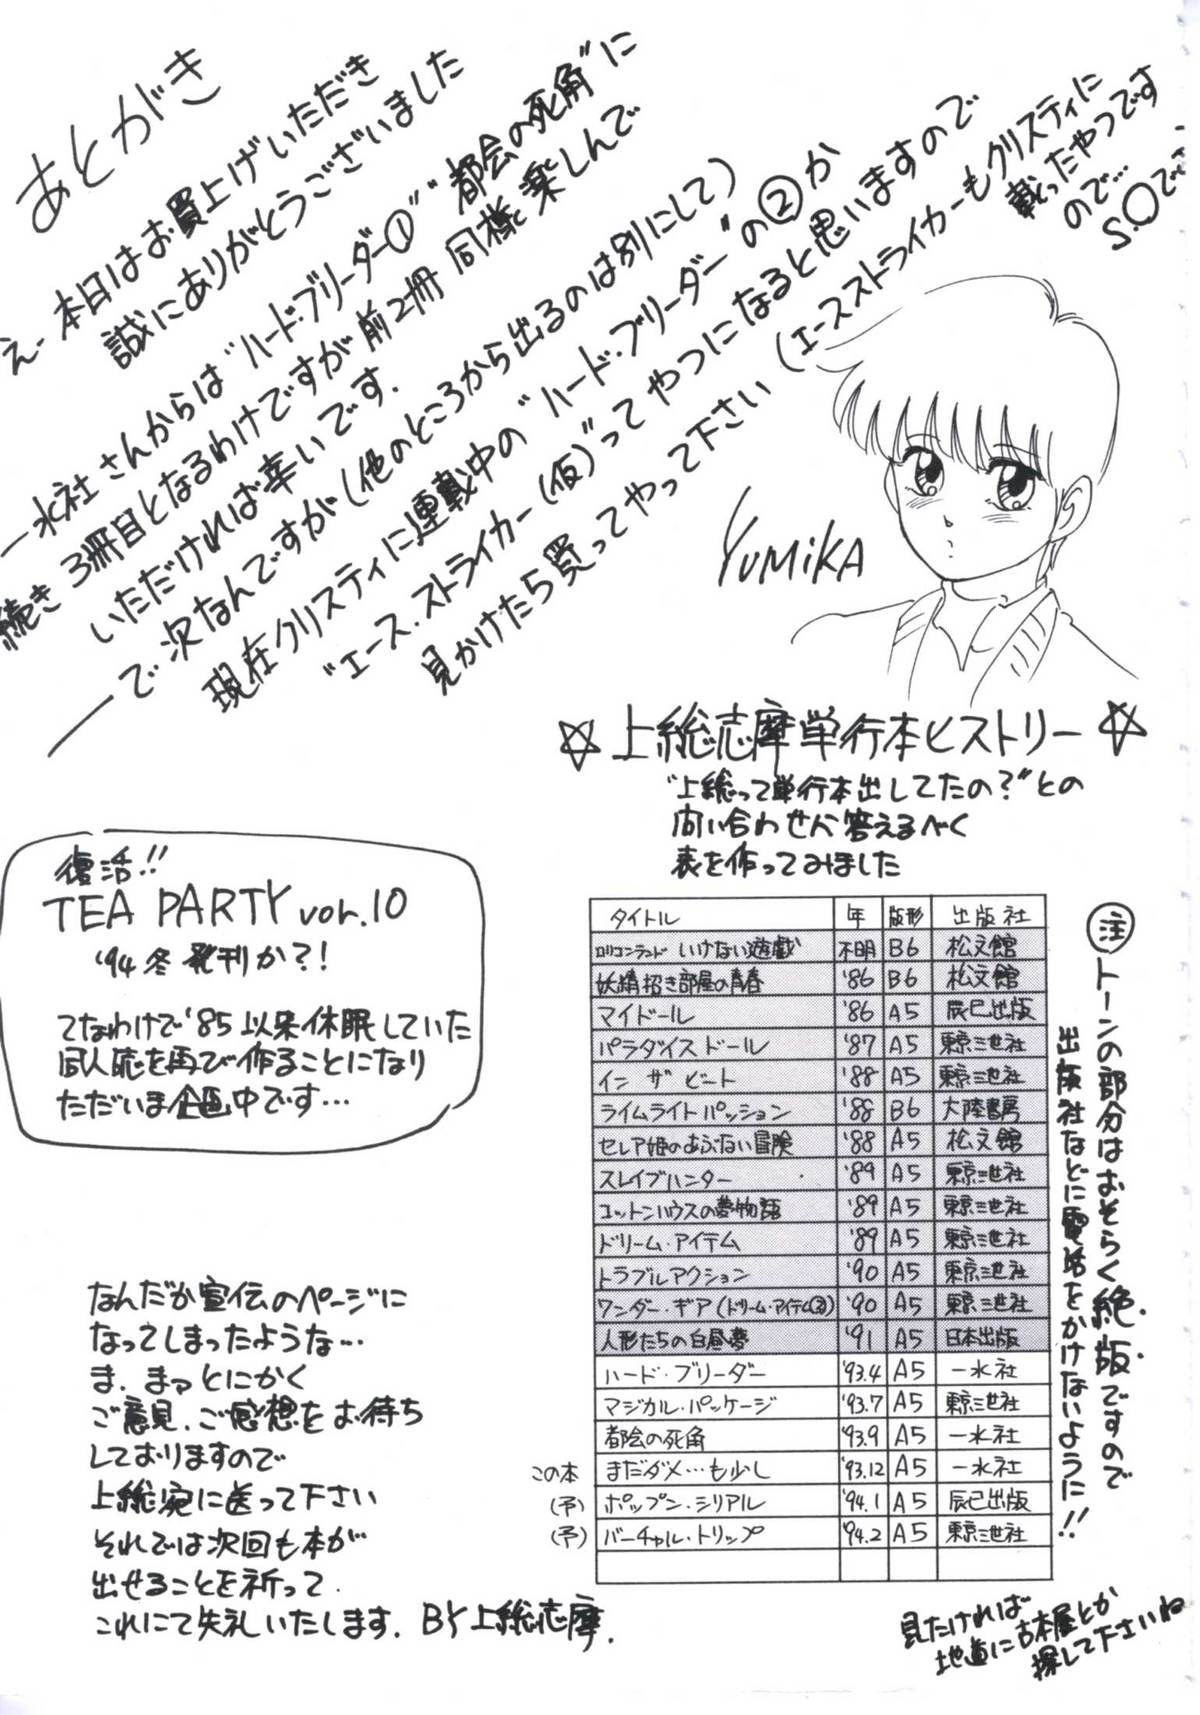 あとがき
え- 本日はお買上げいただき
誠にありがとうございました
一水社さんからは"ハード・ブリーダー①""都会の死角"に
続き3冊目となるわけですが前2冊同様楽しんで
いただければ幸いです.
で次なんですが(他のところから出るのは別にして)
現在クリスティに連載中の"ハード・ブリーダー"の②か
"エース.ストライカー(仮)"ってやつになると思いますので
見かけたら買ってやって下さい(エースストライカーもクリスティに
載ったやつです
ので…
YUMiKA
☆上総志摩単行本ヒストリー☆
"上総って単行本出してたの?"との
問い合わせに答えるべく
表を作ってみました
復活!!
TEA PARTY vol.10
'94冬発刊か?!
てなわけで'85以来休眠していた
同人誌を再び作ることになり
ただいま企画中です…
タイトル 年 版形 出版社
ロリコンランド いけない遊戯 不明 B6 松文館
妖精招き部屋の青春 '86 B6 松文館
マイドール '86 A5 辰巳出版
パラダイスドール '87 A5 東京三世社
イン ザ ビート '88 A5 東京三世社
ライムライトパッション '88 B6 大陸書房
セレア姫のあぶない冒険 '88 A5 松文館
スレイブハンター '89 A5 東京三世社
コットンハウスの夢物語 '89 A5 東京三世社
ドリーム・アイテム '89 A5 東京三世社
トラブルアクション '90 A5 東京三世社
ワンダー・ギア(ドリーム・アイテム②) '90 A5 東京三世社
人形たちの白昼夢 '91 A5 日本出版
ハード・ブリーダー '93.4 A5 一水社
マジカル・パッケージ '93.7 A5 東京三世社
都会の死角 '93.9 A5 一水社
この本 まだダメ…も少し '93.12 A5 一水社
(予) ポップン・シリアル '94.1 A5 辰巳出版
(予) バーチャル・トリップ '94.2 A5 東京三世社
注 トーンの部分はおそらく絶版ですので
出版社などに電話をかけないように!!
見たければ
地道に古本屋とか
探して下さいね
なんだか宣伝のページに
なってしまったような…
ま.まァとにかく
ご意見.ご感想をお待ち
しておりますので
上総宛に送って下さい
それでは次回も本が
出せることを祈って.
これにて失礼いたします. BY上総志摩.